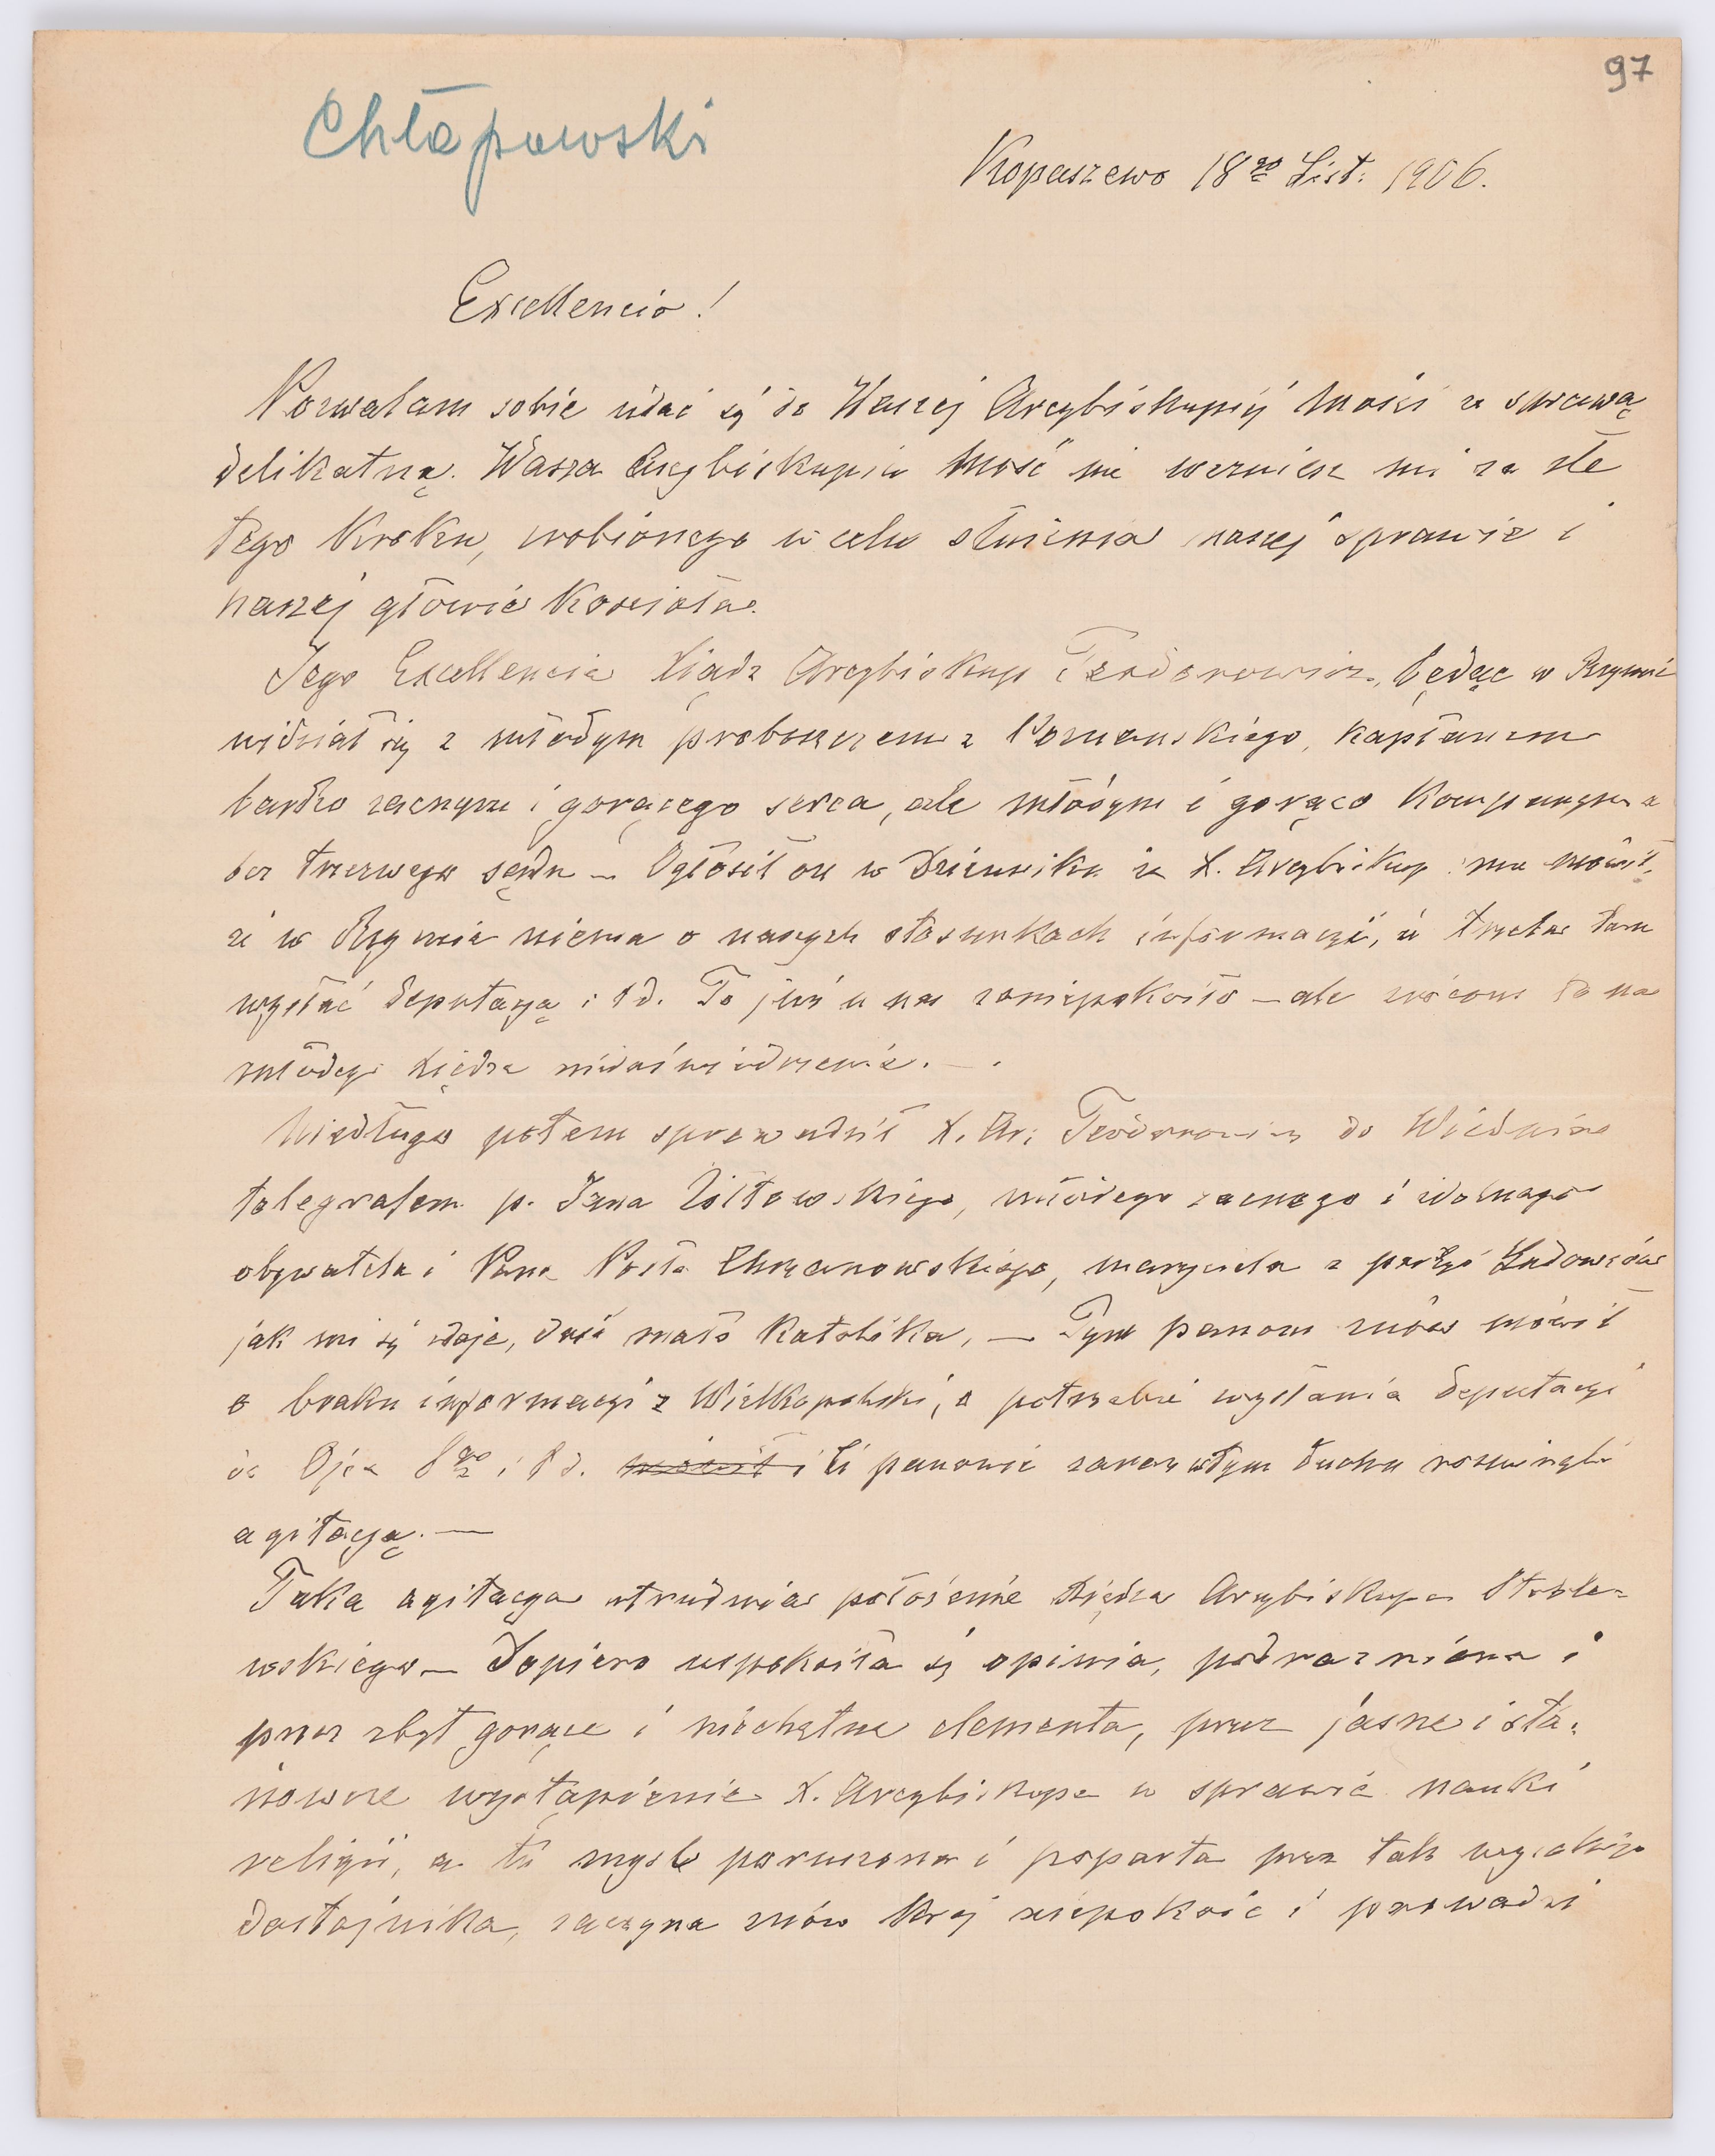 97
Chłapowski
Kopaszewo 18go List. 1906.
Excellencio!
Pozwalam sobie udać się do Waszej Arcybiskupiej Mości ze sprawą
delikatną. Wasza Arcybiskupia Mość nie weźmiesz mi za złe
tego kroku, zrobionego w celu służenia naszej sprawie i
naszej głowie Kościoła.
Jego Excellencia Xiądz Arcybiskup Teodorowicz, będąc w Rzymie
widział się z młodym proboszczem z Poznańskiego, kapłanem
bardzo zacnym i gorącego serca, ale młodym i gorąco
bez trzeźwego sądu – Ogłosił on w Dzienniku że X. Arcybiskup mu mówił,
że w Rzymie niema o naszych stosunkach informacyi, że trzeba tam
wysłać deputacyą i td. To już u nas zaniepokoiło – ale zwócono to na
młodego Xiędza niedoświadczenie. –
Niedługo potem sprowadził X. Ar: Teodorowicz do Wiednia
telegrafem p. Jana Żółtowskiego, młodego zacnego i zdolnego
obywatela i Pana Posła Chrzanowskiego, z partyi Ludowców
jak mi się zdaje, dość mało Katolika, – Tym panom znów mówił
o braku informacyi z Wielkopolski, o potrzebie wysłania deputacyi
do Ojca Sgo i td. mówił i Ci panowie zaraz w tym duchu rozwinęli
agitacyą. –
Taka agitacya utrudnia położenie Xiędza Arcybiskupa Stable-
wskiego – Dopiero uspokoiła się opinia, podrażniona i
przez zbyt gorące i niechętne elementa, przez jasne i sta-
nowcze wystąpienie X. Arcybiskupa w sprawie nauki
religii, a tu myśl poruszona i poparta przez tak wysokiego
dostojnika, zaczyna znów kraj niepokoić i prowadzi